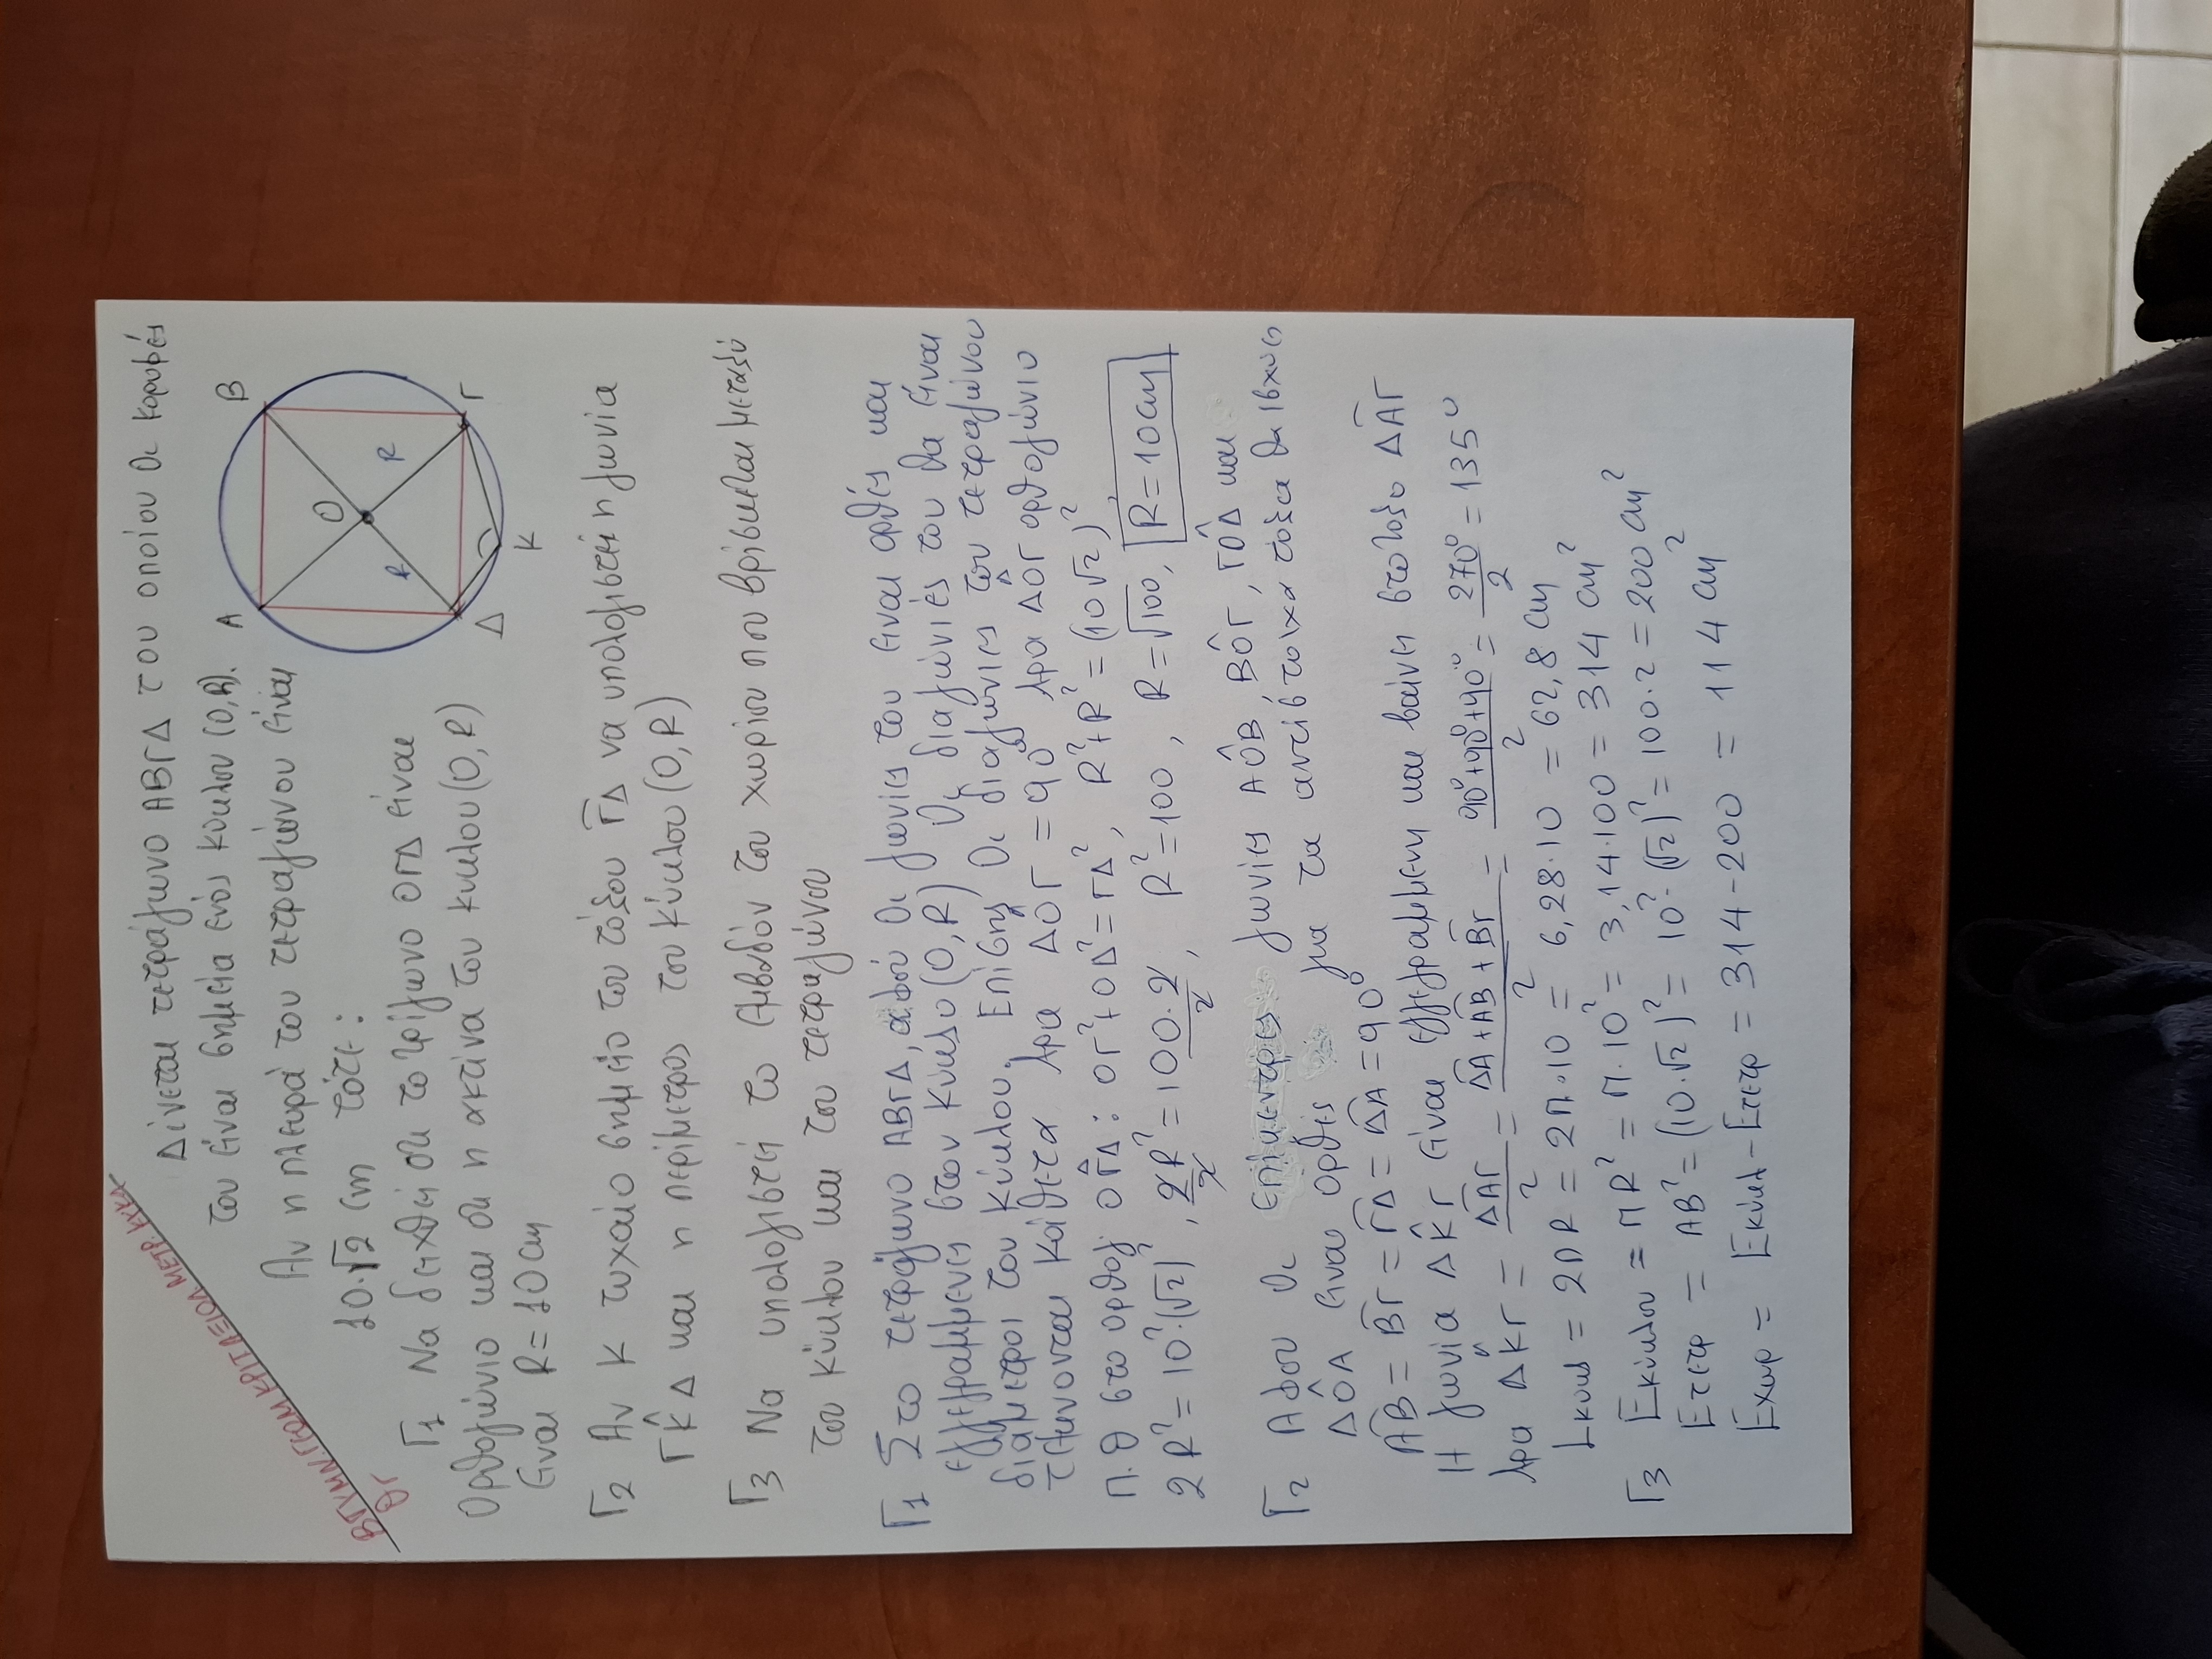 ΒΓΥΜΝ/ΓΕΩΜ ΚΡΙΤ ΑΞΙΟΛ ΜΕΤΡ. ΚΥΚΛ
Θγ
Δίνεται τετράγωνο ΑΒΓΔ του οποίου οι κορυφές
του είναι σημεία ενός κύκλου (Ο,R).
Αν η πλευρά του τετραγώνου είναι
10·√2 cm τότε:
Γ1 Να δειχθεί ότι το τρίγωνο ΟΓΔ είναι
Ορθογώνιο και ότι η ακτίνα του κυκλου (Ο,R)
είναι R = 10cm
Α
Β
Ο
R
R
Δ
Γ
Κ
Γ2 Αν Κ τυχαίο σημείο του τόξου ΓΔ να υπολογιστεί η γωνία
ΓΚ̂Δ και η περίμετρος του κύκλου (Ο,R)
Γ3 Να υπολογιστεί το εμβαδόν του χωρίου που βρίσκεται μεταξύ
του κύκλου και του τετραγώνου
Γ1 Στο τετράγωνο ΑΒΓΔ, αφού οι γωνίες του είναι ορθές και
εγγεγραμμενες στον κύκλο (Ο,R) οι διαγώνιές του θα είναι
διάμετροι του κύκλου. Επίσης οι διαγώνιες του τετραγώνου
τέμνονται κάθετα Άρα ΔΟ̂Γ = 90° Άρα ΔΟΓ ορθογώνιο
Π.Θ στο ορθογ ΟΓ̂Δ: ΟΓ²+ΟΔ²=ΓΔ², R²+R² = (10√2)²
2R² = 10²·(√2)², 2R²/2 = 100·2/2, R²=100, R=√100, R=10cm
Γ2 Αφου οι επίκεντρες γωνίες ΑΟ̂Β, ΒΟ̂Γ, ΓΟ̂Δ και
ΔΟ̂Α είναι ορθές για τα αντίστοιχα τόξα θα ισχύει
ΑΒ = ΒΓ = ΓΔ = ΔΑ = 90°
Η γωνία ΔΚ̂Γ είναι εγγεγραμμενη και βαίνει στο τόξο ΔΑΓ
Άρα ΔΚ̂Γ = ΔΑΓ/2 = ΔΑ+ΑΒ+ΒΓ/2 = 90°+90°+90°/2 = 270°/2 = 135°
Lκυκλ = 2πR = 2π·10 = 6,28·10 = 62,8 cm
Γ3 Εκύκλου = πR² = π·10² = 3,14·100 = 314 cm²
Ετετρ = ΑΒ² = (10·√2)² = 10²·(√2)² = 100·2 = 200 cm²
Εχωρ = Εκύκλ - Ετετρ = 314-200 = 114 cm²